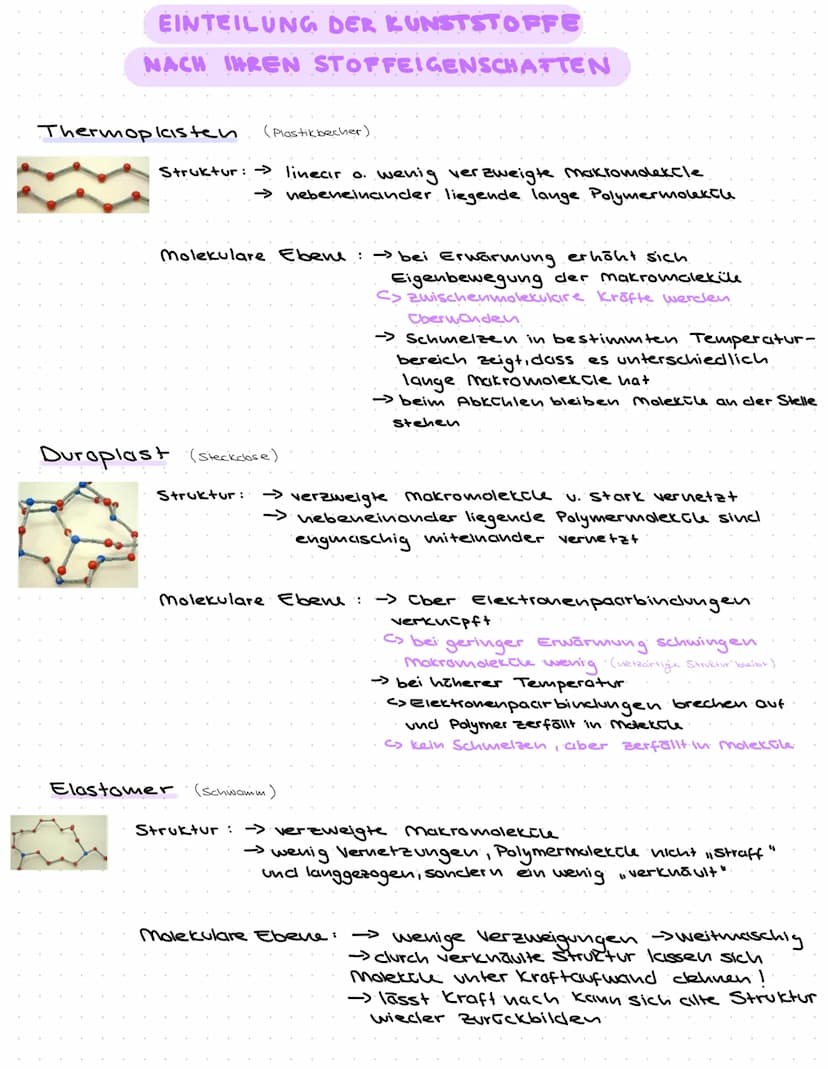 EINTEILUNG DER KUNSTSTOFFE
NACH IHREN STOFFEIGENSCHAFTEN
Thermoplasten (Plastikbecher)
Struktur: → linear o. wenig verzweigte Makromoleküle
→ nebeneinander liegende lange Polymermoleküle
Molekulare Ebene : → bei Erwärmung erhöht sich
Eigenbewegung der Makromoleküle
↪ zwischenmolekulare Kräfte werden
überwunden
→ Schmelzen in bestimmten Temperatur-
bereich zeigt, dass es unterschiedlich
lange Makromoleküle hat
→ beim Abkühlen bleiben Moleküle an der Stelle
stehen
Duroplast (Steckdose)
Struktur: → verzweigte Makromoleküle u. stark vernetzt
→ nebeneinander liegende Polymermoleküle sind
engmaschig miteinander vernetzt
Molekulare Ebene : → über Elektronenpaarbindungen
verknüpft
↪ bei geringer Erwärmung schwingen
Makromoleküle wenig (netzartige Struktur bleibt)
→ bei höherer Temperatur
↪ Elektronenpaarbindungen brechen auf
und Polymer zerfällt in Moleküle
↪ kein Schmelzen, aber zerfällt in Moleküle
Elastomer (Schwamm)
Struktur : → verzweigte Makromoleküle
→ wenig Vernetzungen, Polymermoleküle nicht „straff"
und langgezogen, sondern ein wenig „verknäult"
Molekulare Ebene: → wenige Verzweigungen → weitmaschig
→ durch verknäulte Struktur lassen sich
Moleküle unter Kraftaufwand dehnen!
→ lässt Kraft nach kann sich alte Struktur
wieder zurückbilden